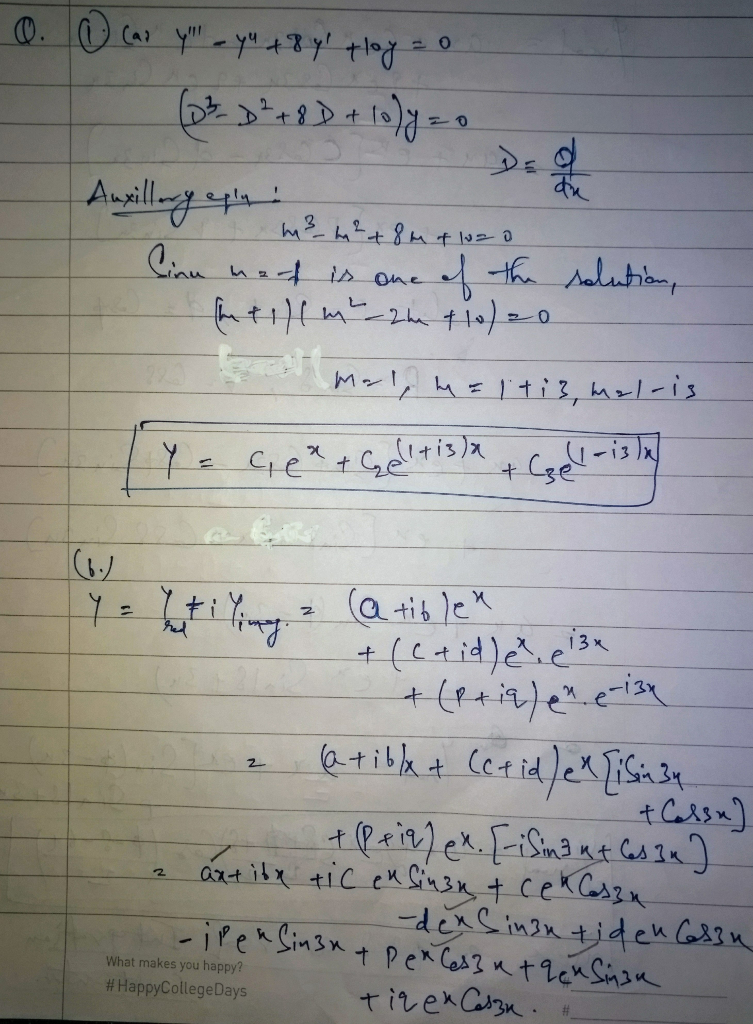 Q. ① (a) y''' - y'' + 8y' + 10y = 0
(D³ - D² + 8D + 10)y = 0
D = d/dx
Auxillary eqln :
m³ - m² + 8m + 10 = 0
Sinu m = -1 is one of the solution,
(m + 1)(m² - 2m + 10) = 0
m = 1, m = 1 + i3, m = 1 - i3
Y = C₁eˣ + C₂e^(1+i3)x + C₃e^(1-i3)x
(b.)
Y = Y_real + i Y_imag. = (a + ib)eˣ
+ (c + id)eˣ. e^i3x
+ (p + iq)eˣ. e^-i3x
= (a + ib)x + (c + id)eˣ [iSin3x
+ Cos3x]
+ (p + iq) eˣ. [-iSin3x + Cos3x]
= ax + ibx + ic eˣ Sin3x + c eˣ Cos3x
- d eˣ Sin3x + id eˣ Cos3x
- ip eˣ Sin3x + p eˣ Cos3x + q eˣ Sin3x
+ iq eˣ Cos3x.
What makes you happy?
#HappyCollegeDays
#